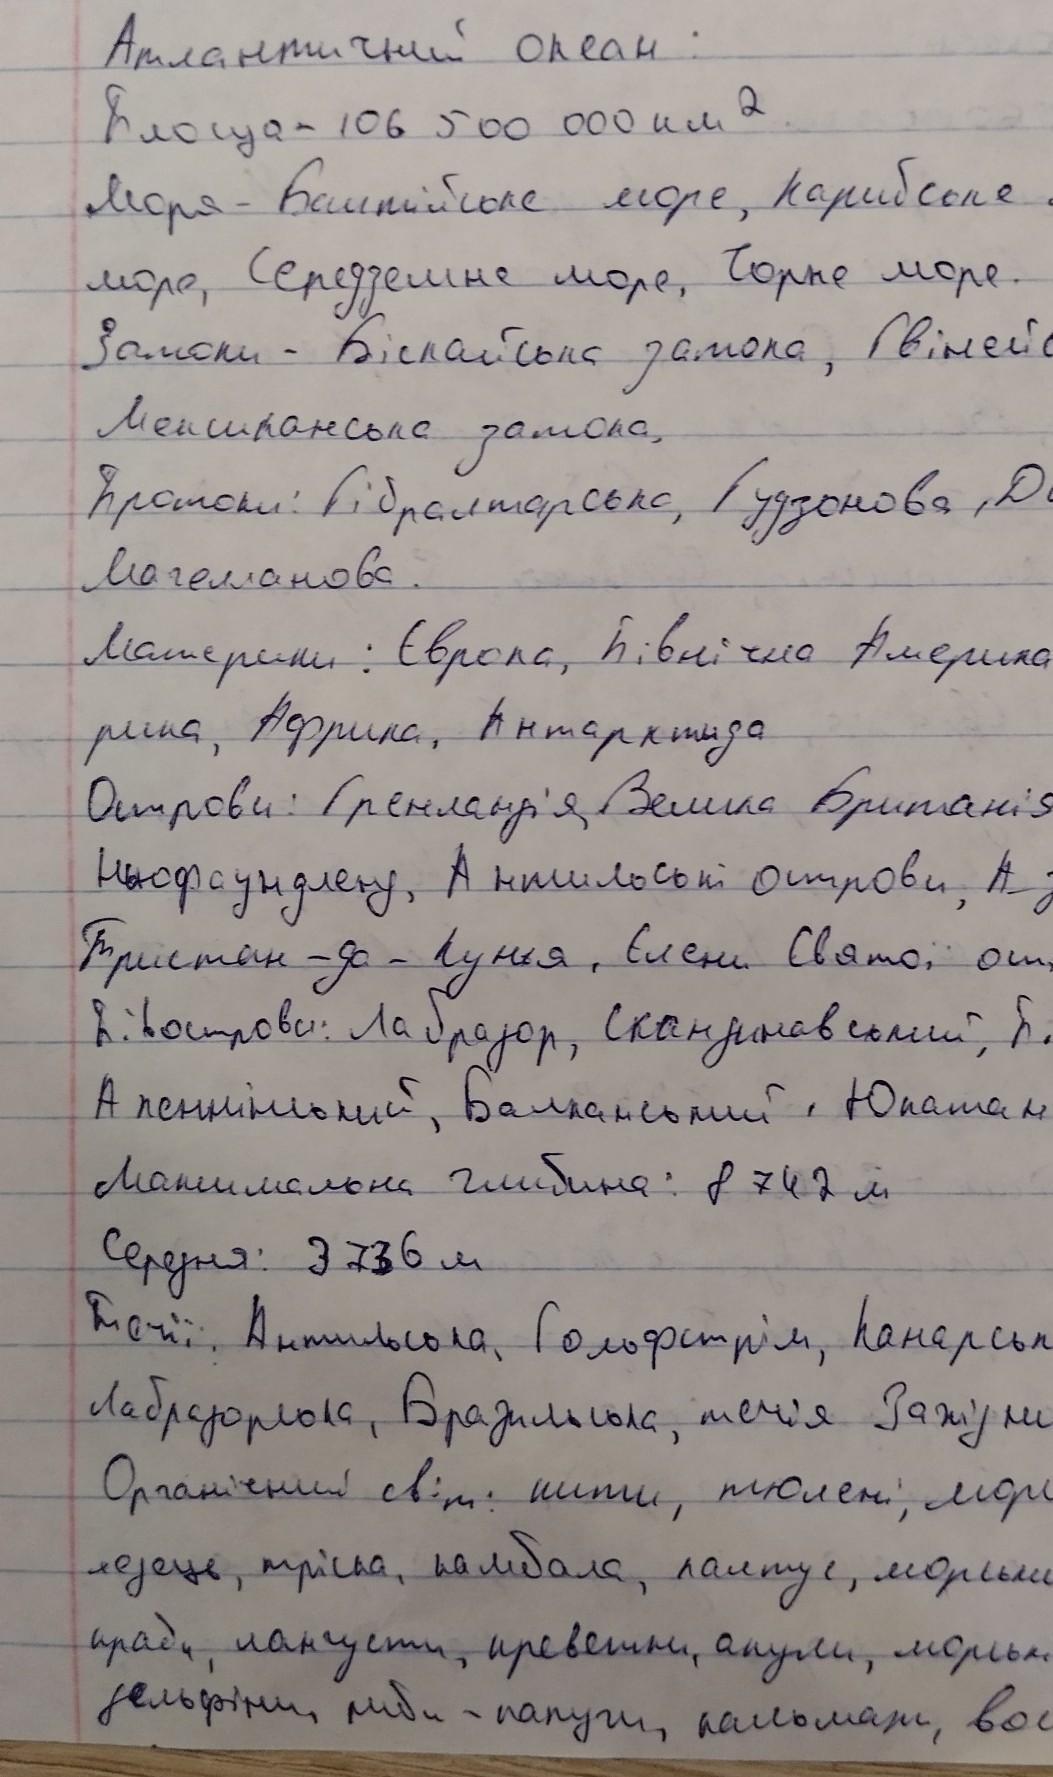 Атлантичний океан:
Площа - 106 500 000 км²
Моря - Балтійське море, Карибське
море, Середземне море, Чорне море.
Затоки - Біскайська затока, Гвінейс
Мексиканська затока,
Протоки: Гібралтарська, Гудзонова,
Магелланова.
Материки: Європа, Північна Америка
рика, Африка, Антарктида
Острови: Гренландія, Велика Британія
Ньюфаундленд, Антильські острови, А-з
Тристан-да-Кунья, Єлени Святої ост
Півострови: Лабрадор, Скандинавський, П
Апеннінський, Балканський, Юкатан
Максимальна глибина: 8 742 м
Середня: 3 736 м
Течії: Антильська, Гольфстрім, Канарськ
Лабрадорська, Бразильська, течія Західни
Органічний світ: кити, тюлені, морс
тріска, камбала, палтус, морськи
краби, лангусти, креветки, акули, морськ
дельфіни, риби-папуги, кальмари, вос